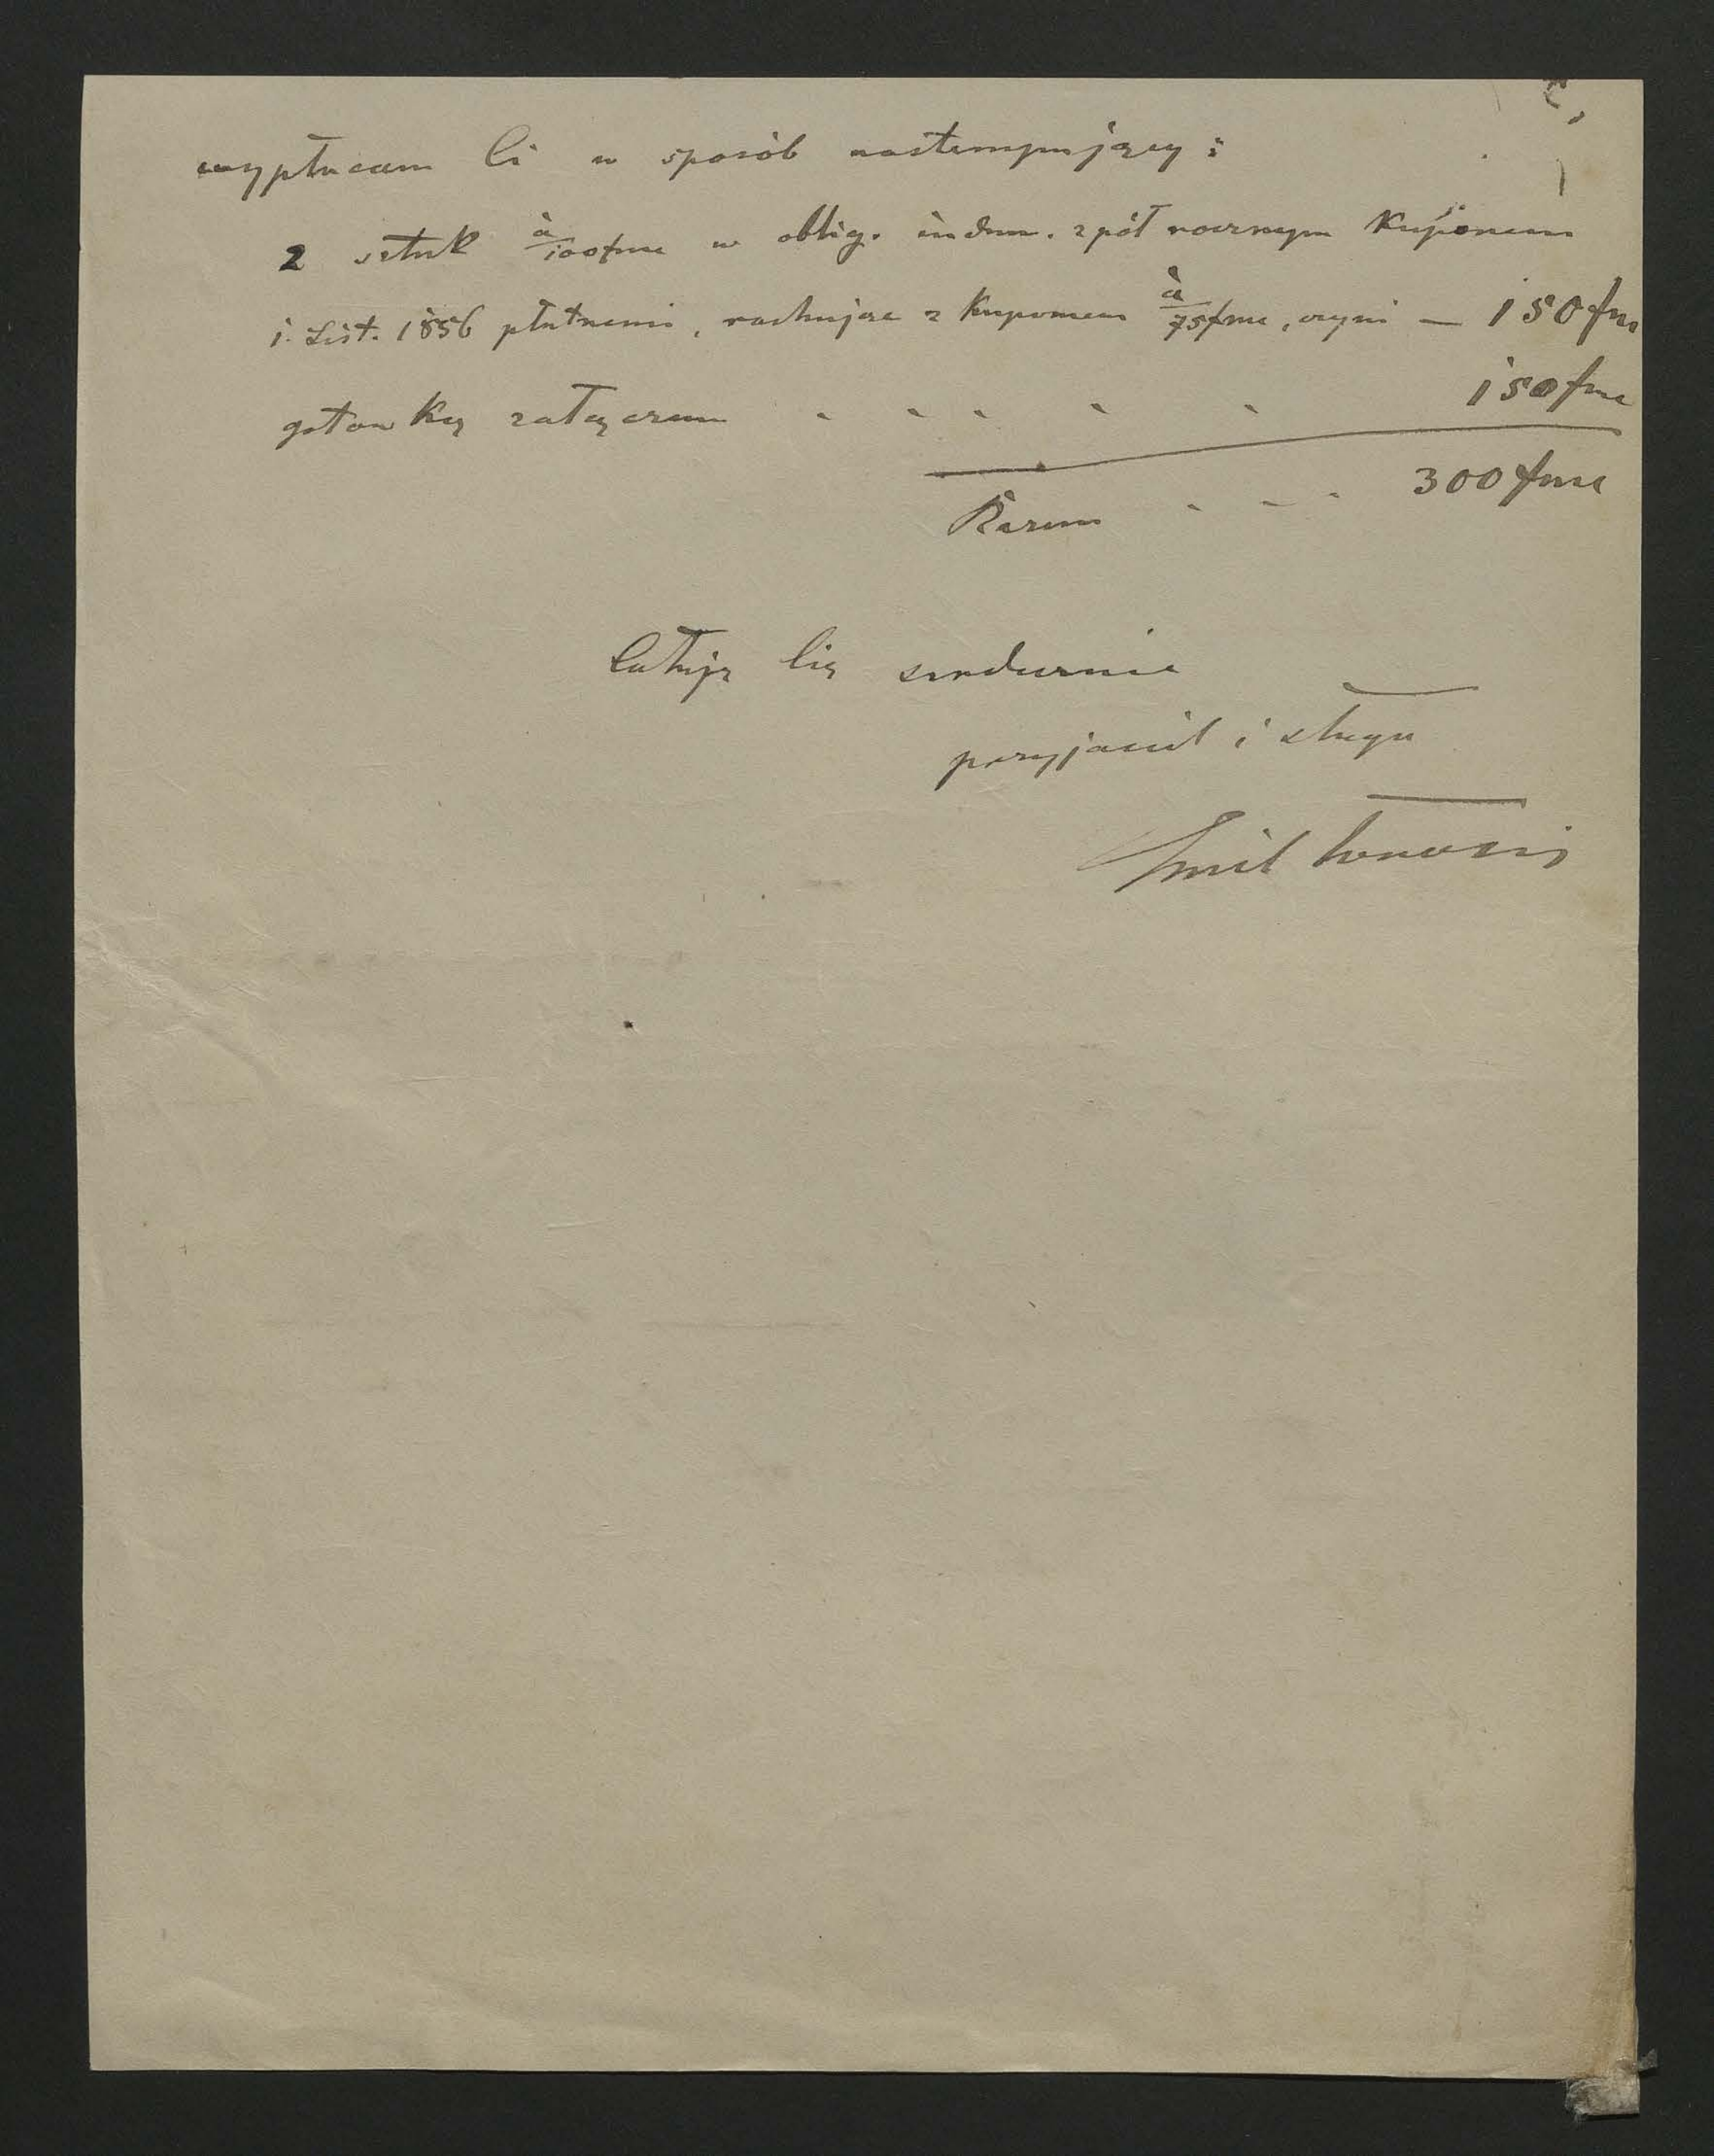 wypłacam Ci w sposób nastempujący:
2 sztuk à 100 fmc w oblig. indem. z pół rocznym Kuponem
1. List. 1856 płatnemi, rachując z Kuponem à 75 fmc, czyni — 150 fmc
gotowką załączam - - - - - 150 fmc
Razem - - - 300 fmc
Całuję Cię serdecznie
przyjaciel i sługa
Emil